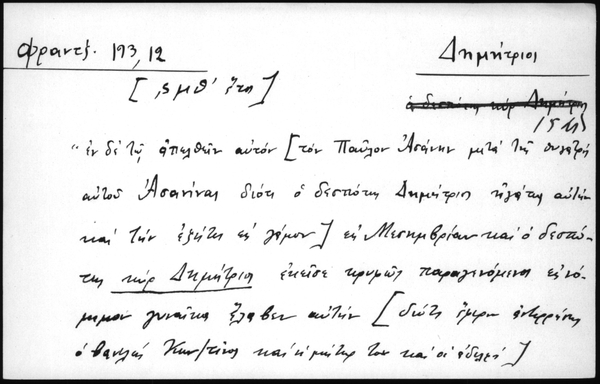 Φραντζ. 193,12
Δημήτριος
[ ͵ϛ μθ' ἔτη ]
ὁ δεσπότης κὺρ Δημήτρις
"ἐν δὲ τῇ ἀπελθεῖν αὐτόν [τὸν Παῦλον Ἀσάνην μετὰ τῆς θυγατρὸς
αὐτοῦ Ἀσανίνας διότι ὁ δεσπότης Δημήτριος ἠγάπα αὐτὴν
καὶ τὴν ἐζήτει εἰς γάμον] εἰς Μεσημβρίαν καὶ ὁ δεσπό-
της κὺρ Δημήτριος ἐκεῖσε κρυφίως παραγενόμενος εἰς νό-
μιμον γυναῖκα ἔλαβεν αὐτήν [διότι ἔφερον ἀντιρρήσεις
ὁ βασιλεὺς Κων/τῖνος καὶ ἡ μήτηρ του καὶ οἱ ἀδελφοί]